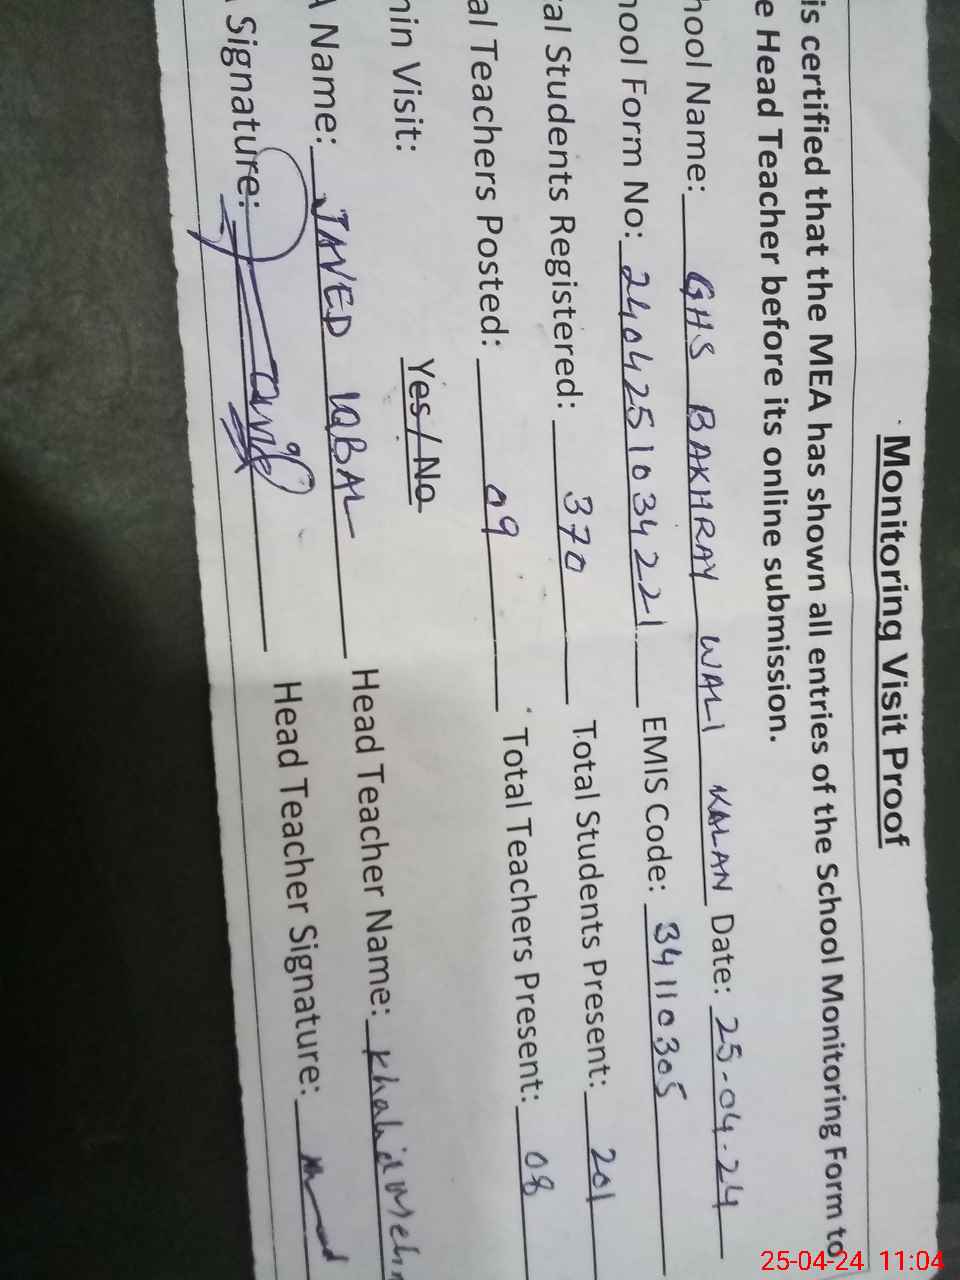 Monitoring Visit Proof
is certified that the MEA has shown all entries of the School Monitoring Form to
e Head Teacher before its online submission.
hool Name: GHS BAKHRAY WALI KALAN Date: 25-04-24
hool Form No: 2404251034221 EMIS Code: 34110305
al Students Registered: 370 Total Students Present: 201
al Teachers Posted: 09 Total Teachers Present: 08
min Visit: Yes / No
A Name: JAVED IQBAL Head Teacher Name: Khalid Mehm
Signature: Head Teacher Signature:
25-04-24 11:04